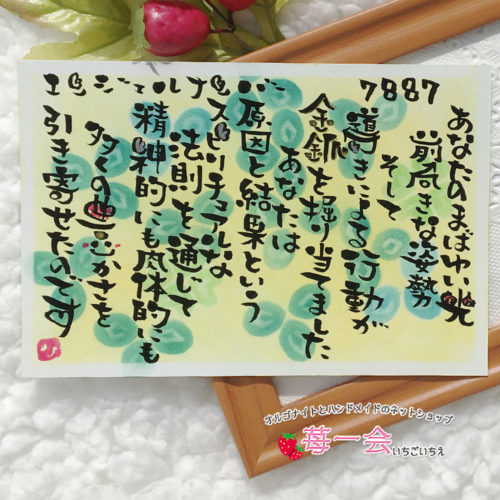 エンジェルナンバー 7887
あなたのまばゆい光
前向きな姿勢
そして
導きによる行動が
金鉱を掘り当てました
あなたは
原因と結果という
スピリチュアルな
法則を通じて
精神的にも肉体的にも
多くの豊かさを
引き寄せたのです
オルゴナイトとハンドメイドのネットショップ
苺一会 いちごいちえ